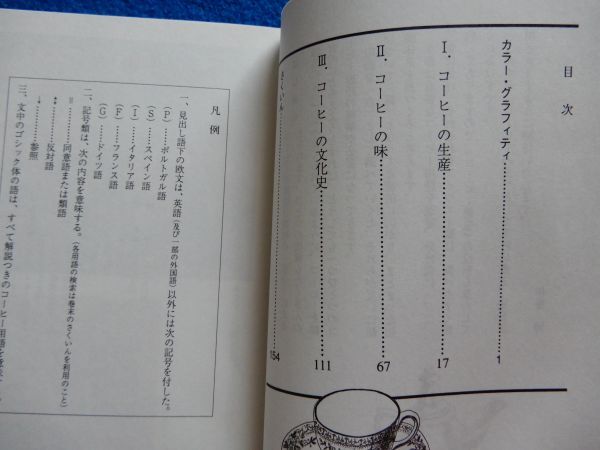 目次
カラー・グラフィティ……1
Ⅰ. コーヒーの生産……17
Ⅱ. コーヒーの味……67
Ⅲ. コーヒーの文化史……111
さくいん……154
凡例
一、見出し語下の欧文は、英語(及び一部の外国語)以外には次の記号を付した。
(P)……ポルトガル語
(S)……スペイン語
(I)……イタリア語
(F)……フランス語
(G)……ドイツ語
二、記号類は、次の内容を意味する。(各用語の検索は巻末のさくいんを利用のこと)
＝……同意語または類語
↔……反対語
→……参照
三、文中のゴシック体の語は、すべて解説つきのコーヒー用語を意味